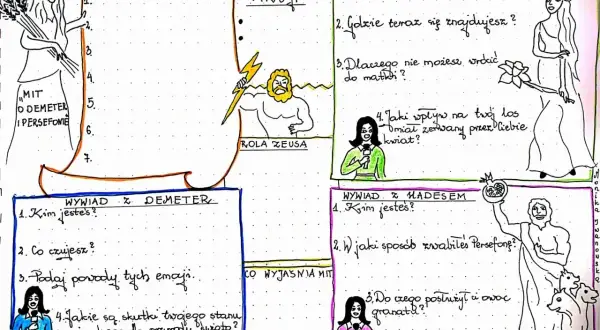 1.
2.
3.
4.
5.
6.
7.
"MIT
O DEMETER
I PERSEFONIE"
ROLA ZEUSA
CO WYJAŚNIA MIT
2. Gdzie teraz się znajdujesz?
3. Dlaczego nie możesz wrócić
do matki?
4. Jaki wpływ na twój los
miał zerwany przez Ciebie
kwiat?
WYWIAD Z DEMETER
1. Kim jesteś?
2. Co czujesz?
3. Podaj powody tych emocji.
4. Jakie są skutki twojego stanu
WYWIAD Z HADESEM
1. Kim jesteś?
2. W jaki sposób zwabiłeś Persefonę?
3. Do czego posłużył ci owoc
granatu?